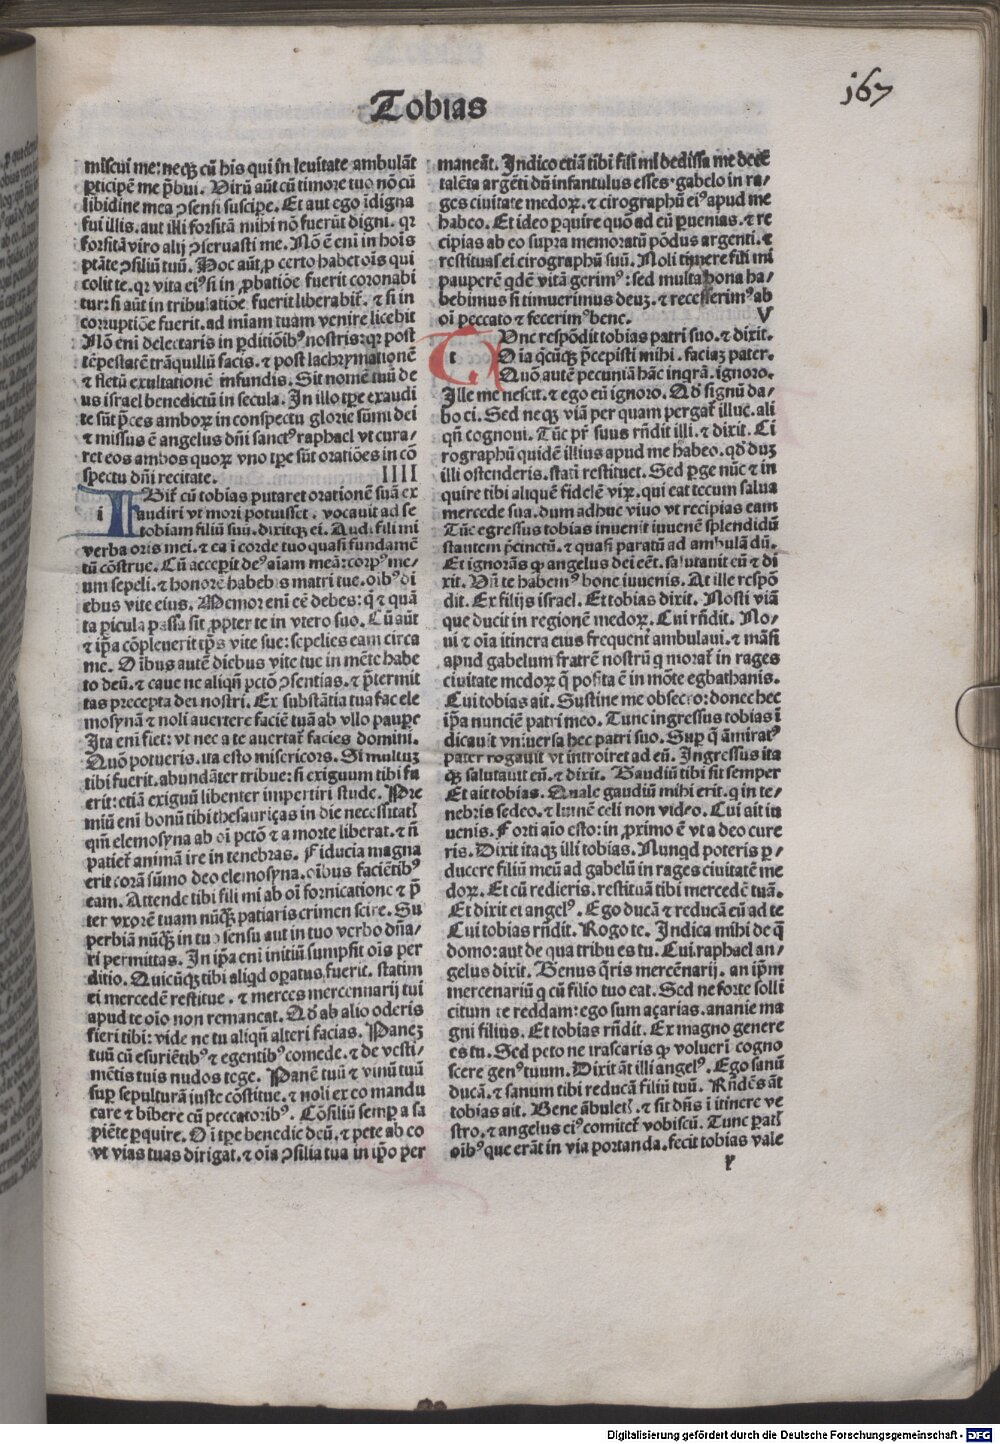 167
Tobias
miscui me: neqꝫ cū his qui in leuitate ambulāt
ꝑticipē me p̄bui. Virū aūt cū timore tuo nō cū
libidine mea ꝯsensi suscipe. Et aut ego īdigna
fui illis. aut illi forsitā mihi nō fuerūt digni. qꝛ
forsitā viro alij ꝯseruasti me. Nō ē eni in hoīs
ptāte ꝯsiliū tuū. Hoc aūt ꝓ certo habet oīs qui
colit te. qꝛ vita eiꝰ si in ꝓbatiōe fuerit coronabi
tur: si aūt in tribulatiōe fuerit liberabiꝉ. ⁊ si in
corruptiōe fuerit. ad miam tuam venire licebit
Nō eni delectaris in ꝑditiōibꝰ nostris: qꝛ post
tēpestatē trāquillū facis. ⁊ post lachrymationē
⁊ fletū exultationē infundis. Sit nomē tuū de
us israel benedictū in secula. In illo tꝑe exaudi
te sūt p̄ces amboꝝ in conspectu glorie sūmi dei
⁊ missus ē angelus dn̄i sanctꝰ raphael vt cura/
ret eos ambos quoꝝ vno tꝑe sūt oratiōes in cō
spectu dn̄i recitate. IIII
i Giꝉ cū tobias putaret orationē suā ex
audiri vt mori potuisset. vocauit ad se
tobiam filiū suū. dixitqꝫ ei. Audi fili mi
verba oris mei. ⁊ ea ī corde tuo quasi fundamē
tū cōstrue. Cū acceperit deꝰ aīam meā: corpꝰ me/
um sepeli. ⁊ honorē habebis matri tue. oībꝰ di
ebus vite eius. Memor eni eē debes: q̄ ⁊ quā
ta ꝑicula passa sit ꝓpter te in vtero suo. Cū aūt
⁊ ip̄a cōpleuerit tp̄s vite sue: sepelies eam circa
me. Oībus autē diebus vite tue in mēte habe
to deū. ⁊ caue ne aliqn̄ pctō ꝯsentias. ⁊ p̄termit
tas precepta dei nostri. Ex substātia tua fac ele
mosynā ⁊ noli auertere faciē tuā ab vllo paupe
Ita eni fiet: vt nec a te auertaꝉ facies domini.
Quō potueris. ita esto misericors. Si multuꝫ
tibi fuerit. abundāter tribue: si exiguum tibi fu
erit: etiā exiguū libenter impertiri stude. Pre
miū eni bonū tibi thesauriças in die necessitatꝭ
qm̄ elemosyna ab oī pctō ⁊ a morte liberat. ⁊ n̄
patieꝉ animā ire in tenebras. Fiducia magna
erit corā sūmo deo elemosyna. oībus faciētibꝰ
eam. Attende tibi fili mi ab oī fornicatione ⁊ p̄
ter vxorē tuam nūqꝫ patiaris crimen scire. Su
perbiā nūqꝫ in tuo sensu aut in tuo verbo dn̄a/
ri permittas. In ip̄a eni initiū sumpsit oīs per
ditio. Quicūqꝫ tibi aliqd oꝑatus fuerit. statim
ei mercedē restitue. ⁊ merces mercennarij tui
apud te oīo non remaneat. Qd̄ ab alio oderis
fieri tibi: vide ne tu aliqn̄ alteri facias. Paneꝫ
tuū cū esuriētibꝰ ⁊ egentibꝰ comede. ⁊ de vesti/
mētis tuis nudos tege. Panē tuū ⁊ vinū tuū
suꝑ sepulturā iuste cōstitue. ⁊ noli ex eo mandu
care ⁊ bibere cū peccatoribꝰ. Cōsiliū semꝑ a sa
piēte ꝑquire. Oī tꝑe benedic deū. ⁊ pete ab eo
vt vias tuas dirigat. ⁊ oīa ꝯsilia tua in ip̄o per
maneāt. Indico etiā tibi fili mi dedisse me decē
talēta argēti dū infantulus esses gabelo in ra/
ges ciuitate medoꝝ. ⁊ cirographū eiꝰ apud me
habeo. Et ideo ꝑquire quō ad eū ꝑuenias. ⁊ re
cipias ab eo supra memoratū pōdus argenti. ⁊
restituas ei cirographū suū. Noli timere fili mi
pauperē qdē vitā gerimꝰ: sed multa bona ha/
bebimus si timuerimus deuꝫ. ⁊ recesserimꝰ ab
oī peccato ⁊ fecerimꝰ bene. V
t Vnc respōdit tobias patri suo. ⁊ dixit.
Oīa q̄cūqꝫ p̄cepisti mihi. faciaꝫ pater.
Quō autē pecuniā hāc inqrā. ignoro.
Ille me nescit. ⁊ ego eū ignoro. Qd̄ signū da/
bo ei. Sed neqꝫ viā per quam pergaꝉ illuc. ali
qn̄ cognoui. Tūc pr̄ suus rn̄dit illi. ⁊ dixit. Ci
rographū quidē illius apud me habeo. qd̄ duꝫ
illi ostenderis. statī restituet. Sed ꝑge nūc ⁊ in
quire tibi aliquē fidelē viꝝ. qui eat tecum salua
mercede sua. dum adhuc viuo vt recipias eam
Tūc egressus tobias inuenit iuuenē splendidū
stantem p̄cinctū. ⁊ quasi paratū ad ambulādū.
Et ignorās ꝙ angelus dei eēt. salutauit eū ⁊ di
xit. Vn̄ te habemꝰ bone iuuenis. At ille respō
dit. Ex filijs israel. Et tobias dixit. Nosti viā
que ducit in regionē medoꝝ. Cui rn̄dit. No/
ui ⁊ oīa itinera eius frequenꝉ ambulaui. ⁊ māsi
apud gabelum fratrē nostrū q moraꝉ in rages
ciuitate medoꝝ q̄ posita ē in mōte egbathanis.
Cui tobias ait. Sustine me obsecro: donec hec
ip̄a nunciē patri meo. Tunc ingressus tobias ī
dicauit vniuersa hec patri suo. Suꝑ q̄ āmiratꝰ
pater rogauit vt introiret ad eū. Ingressus ita
qꝫ salutauit eū. ⁊ dixit. Gaudiū tibi sit semper
Et ait tobias. Quale gaudiū mihi erit. q in te/
nebris sedeo. ⁊ lumē celi non video. Cui ait iu
uenis. Forti aīo esto: in ꝓximo ē vt a deo cure
ris. Dixit itaqꝫ illi tobias. Nunqd poteris ꝑ/
ducere filiū meū ad gabelū in rages ciuitatē me
doꝝ. Et cū redieris. restituā tibi mercedē tuā.
Et dixit ei angelꝰ. Ego ducā ⁊ reducā eū ad te
Cui tobias rn̄dit. Rogo te. Indica mihi de q̄
domo: aut de qua tribu es tu. Cui raphael an/
gelus dixit. Genus q̄ris mercēnarij. an ip̄m
mercenariū q cū filio tuo eat. Sed ne forte solli
citum te reddam: ego sum açarias. ananie ma
gni filius. Et tobias rn̄dit. Ex magno genere
es tu. Sed peto ne irascaris ꝙ voluerī cogno
scere genꝰ tuum. Dixit āt illi angelꝰ. Ego sanū
ducā. ⁊ sanum tibi reducā filiū tuū. Rn̄dēs āt
tobias ait. Bene ābuletꝭ. ⁊ sit dn̄s ī itinere ve
stro. ⁊ angelus eiꝰ comiteꝉ vobiscū. Tunc patꝭ
oībꝰ que erāt in via portanda. fecit tobias vale
r
Digitalisierung gefördert durch die Deutsche Forschungsgemeinschaft - DFG